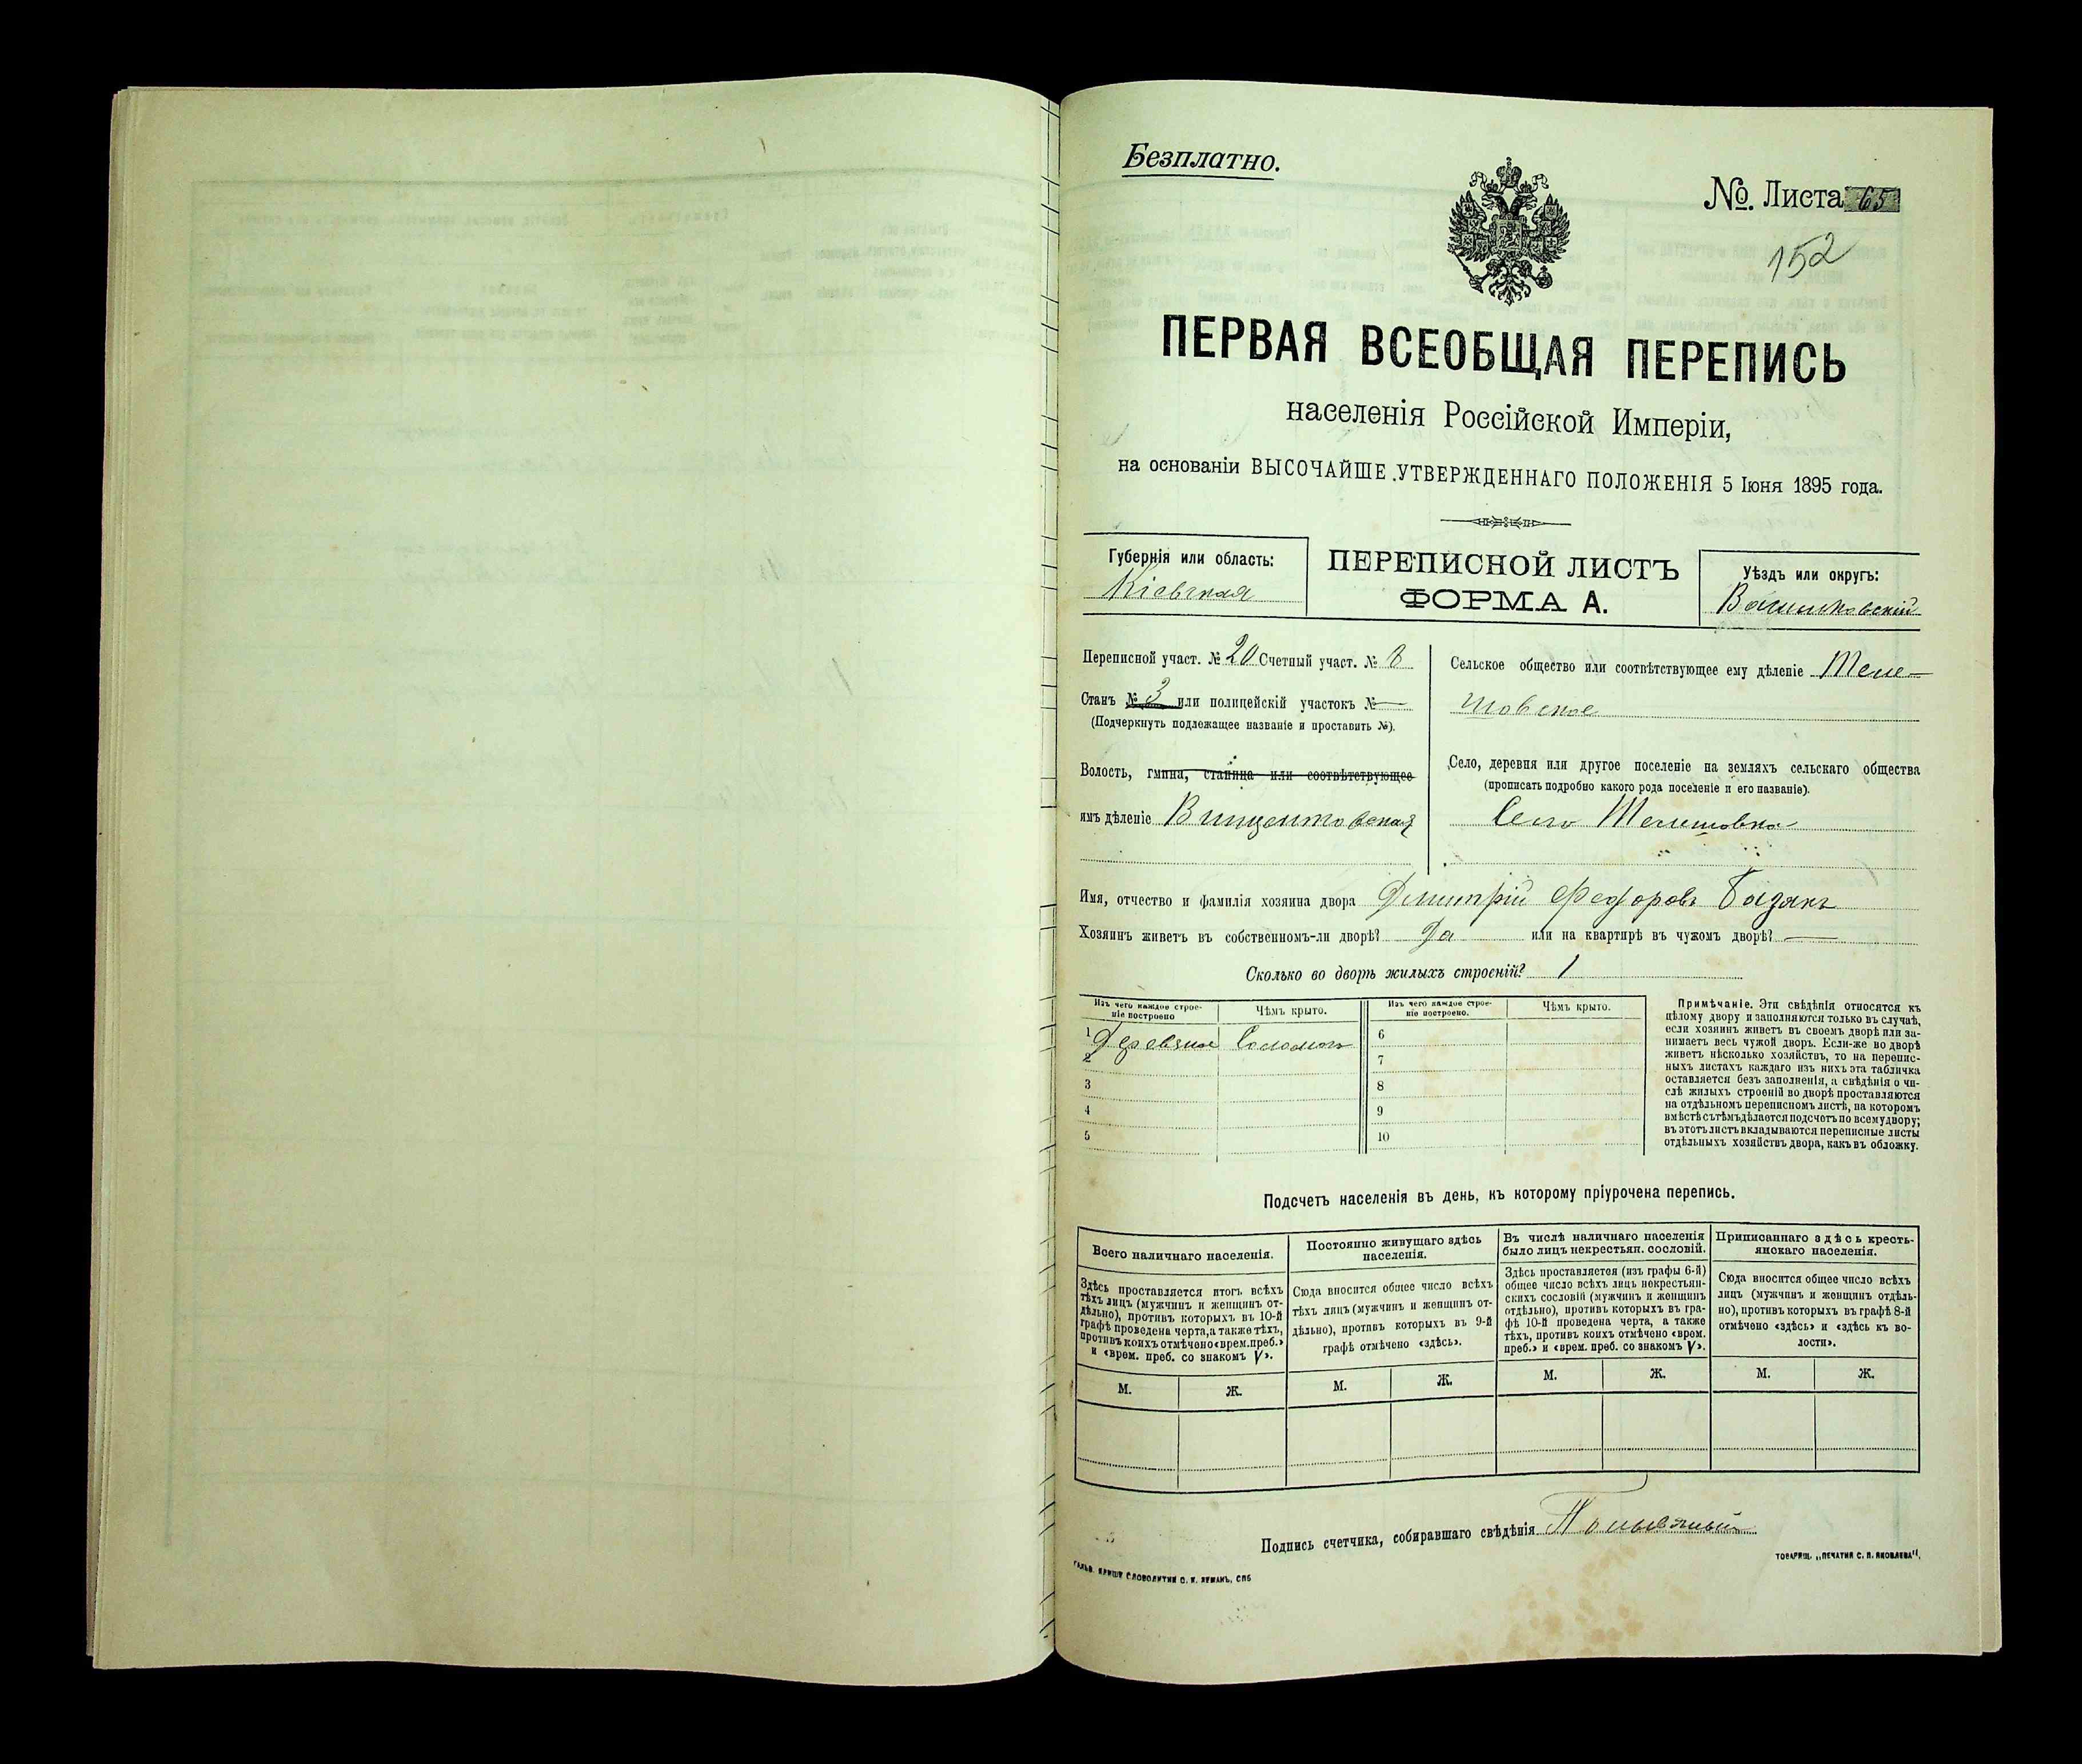 Безплатно.
№. Листа 65
152
ПЕРВАЯ ВСЕОБЩАЯ ПЕРЕПИСЬ
населенія Россійской Имперіи,
на основаніи ВЫСОЧАЙШЕ УТВЕРЖДЕННАГО ПОЛОЖЕНІЯ 5 Іюня 1895 года.
Губернія или область:
Кіевская
ПЕРЕПИСНОЙ ЛИСТЪ
ФОРМА А.
Уѣздъ или округъ:
Васильковскій
Переписной участ. № 20 Счетный участ. № 8
Станъ № 3 или полицейскій участокъ № —
(Подчеркнуть подлежащее названіе и проставить №).
Волость, гмина, станица или соотвѣтствующее
имъ дѣленіе Винцентовская
Сельское общество или соотвѣтствующее ему дѣленіе Теле-
шовское
Село, деревня или другое поселеніе на земляхъ сельскаго общества
(прописать подробно какого рода поселеніе и его названіе).
Село Телешовка
Имя, отчество и фамилія хозяина двора Дмитрій Федоровъ
Хозяинъ живетъ въ собственномъ-ли дворѣ? Да или на квартирѣ въ чужомъ дворѣ? —
Сколько во дворѣ жилыхъ строеній? 1
Изъ чего каждое строе-
ніе построено
Чѣмъ крыто.
Изъ чего каждое строе-
ніе построено.
Чѣмъ крыто.
1 Деревяное Соломою
2
3
4
5
6
7
8
9
10
Примѣчаніе. Эти свѣдѣнія относятся къ
цѣлому двору и заполняются только въ случаѣ,
если хозяинъ живетъ въ своемъ дворѣ или за-
нимаетъ весь чужой дворъ. Если-же во дворѣ
живетъ нѣсколько хозяйствъ, то на перепис-
ныхъ листахъ каждаго изъ нихъ эта табличка
оставляется безъ заполненія, а свѣдѣнія о чи-
слѣ жилыхъ строеній во дворѣ проставляются
на отдѣльномъ переписномъ листѣ, на которомъ
вмѣстѣ съ тѣмъ дѣлается подсчетъ по всему двору;
въ этотъ листъ вкладываются переписные листы
отдѣльныхъ хозяйствъ двора, какъ въ обложку.
Подсчетъ населенія въ день, къ которому пріурочена перепись.
Всего наличнаго населенія.
Здѣсь проставляется итогъ всѣхъ
тѣхъ лицъ (мужчинъ и женщинъ от-
дѣльно), противъ которыхъ въ 10-й
графѣ проведена черта, а также тѣхъ,
противъ коихъ отмѣчено «врем. преб.»
и «врем. преб. со знакомъ V».
М. Ж.
Постоянно живущаго здѣсь
населенія.
Сюда вносится общее число всѣхъ
тѣхъ лицъ (мужчинъ и женщинъ от-
дѣльно), противъ которыхъ въ 9-й
графѣ отмѣчено «здѣсь».
М. Ж.
Въ числѣ наличнаго населенія
было лицъ некрестьян. сословій.
Здѣсь проставляется (изъ графы 6-й)
общее число всѣхъ лицъ некрестьян-
скихъ сословій (мужчинъ и женщинъ
отдѣльно), противъ которыхъ въ гра-
фѣ 10-й проведена черта, а также
тѣхъ, противъ коихъ отмѣчено «врем.
преб.» и «врем. преб. со знакомъ V».
М. Ж.
Приписаннаго здѣсь кресть-
янскаго населенія.
Сюда вносится общее число всѣхъ
лицъ (мужчинъ и женщинъ отдѣль-
но), противъ которыхъ въ графѣ 8-й
отмѣчено «здѣсь» и «здѣсь къ во-
лости».
М. Ж.
Подпись счетчика, собиравшаго свѣдѣнія
СЛОВОЛИТНИ О. И. ЛЕМАНЪ, СПБ
ТОВАРИЩ. „ПЕЧАТНЯ С. П. ЯКОВЛЕВА".